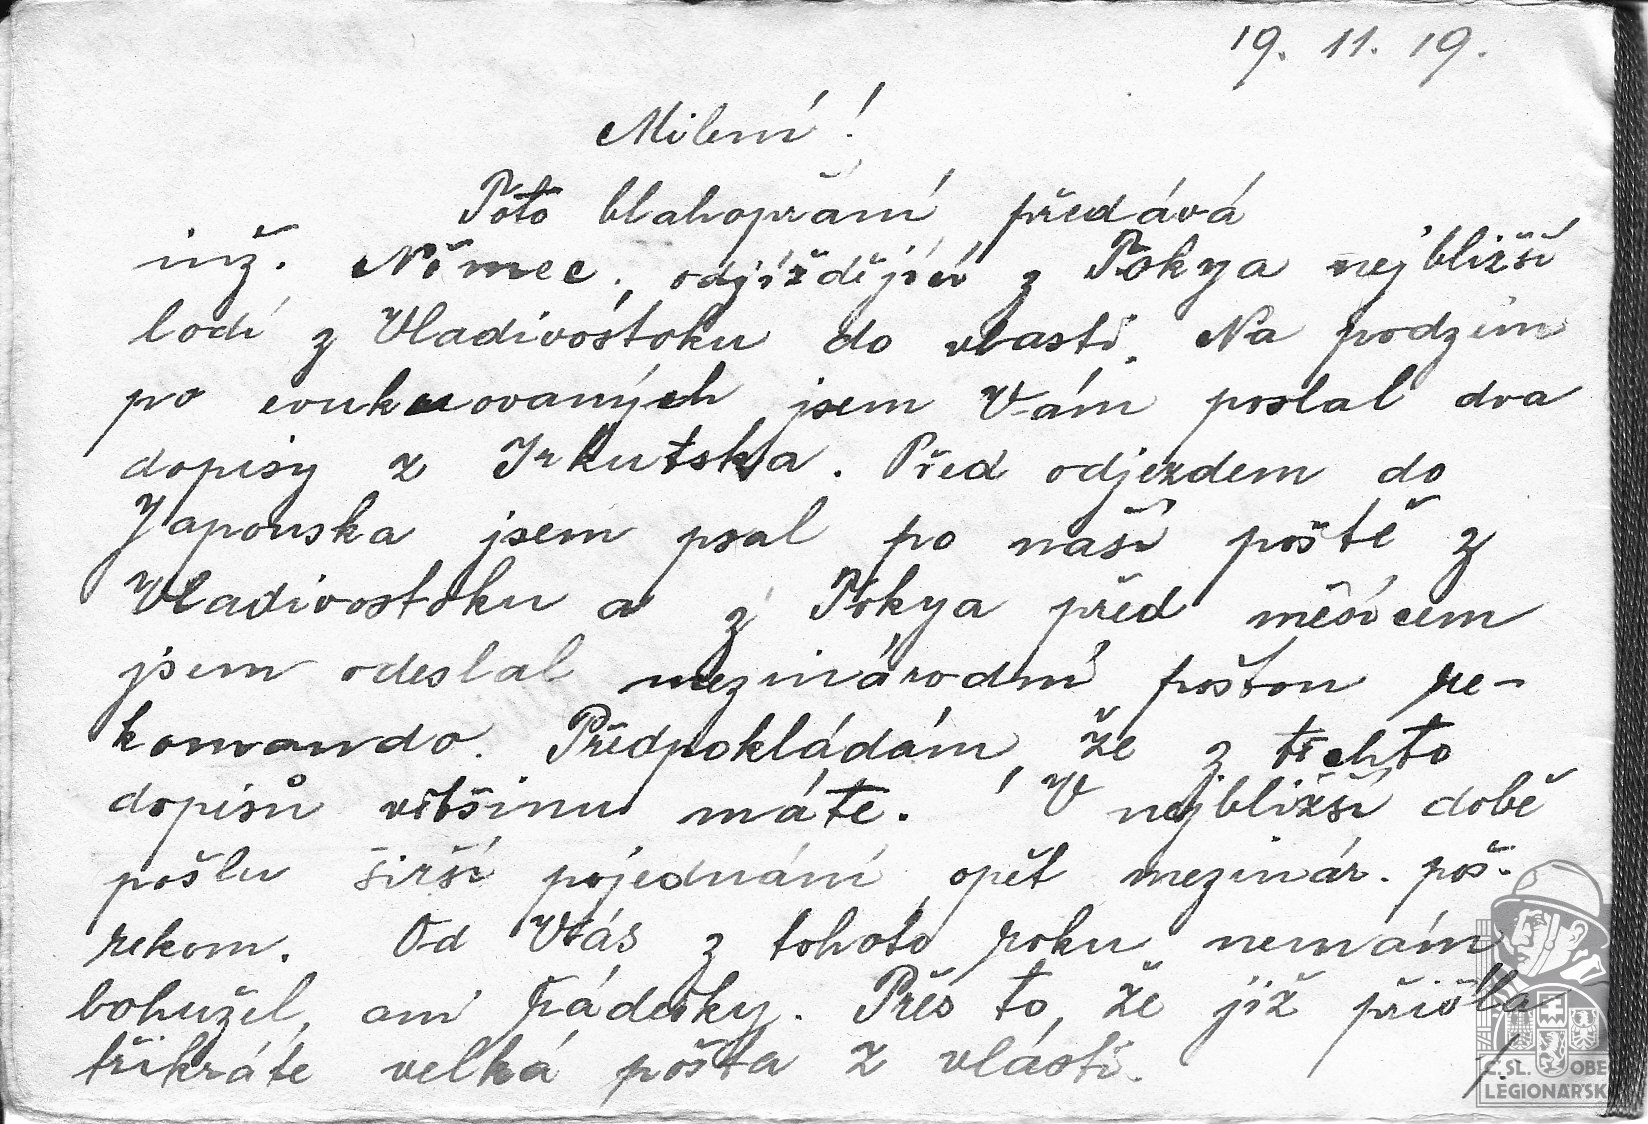 19. 11. 19.
Milení!
Toto blahopřání předává
inž. Němec, odjíždějící z Tokya nejbližší
lodí z Vladivostoku do vlasti. Na podzim
po evakuovaných jsem Vám poslal dva
dopisy z Irkutska. Před odjezdem do
Japonska jsem psal po naší poště z
Vladivostoku a z Tokya před měsícem
jsem odeslal mezinárodní poštou re-
komando. Předpokládám, že z těchto
dopisů většinu máte. V nejbližší době
pošlu širší pojednání opět mezinár. poš.
rekom. Od Vás z tohoto roku nemám
bohužel, ani řádečky. Přes to, že již přišla
třikráte velká pošta z vlasti. ./.
Č. SL. OBE
LEGIONÁŘSK